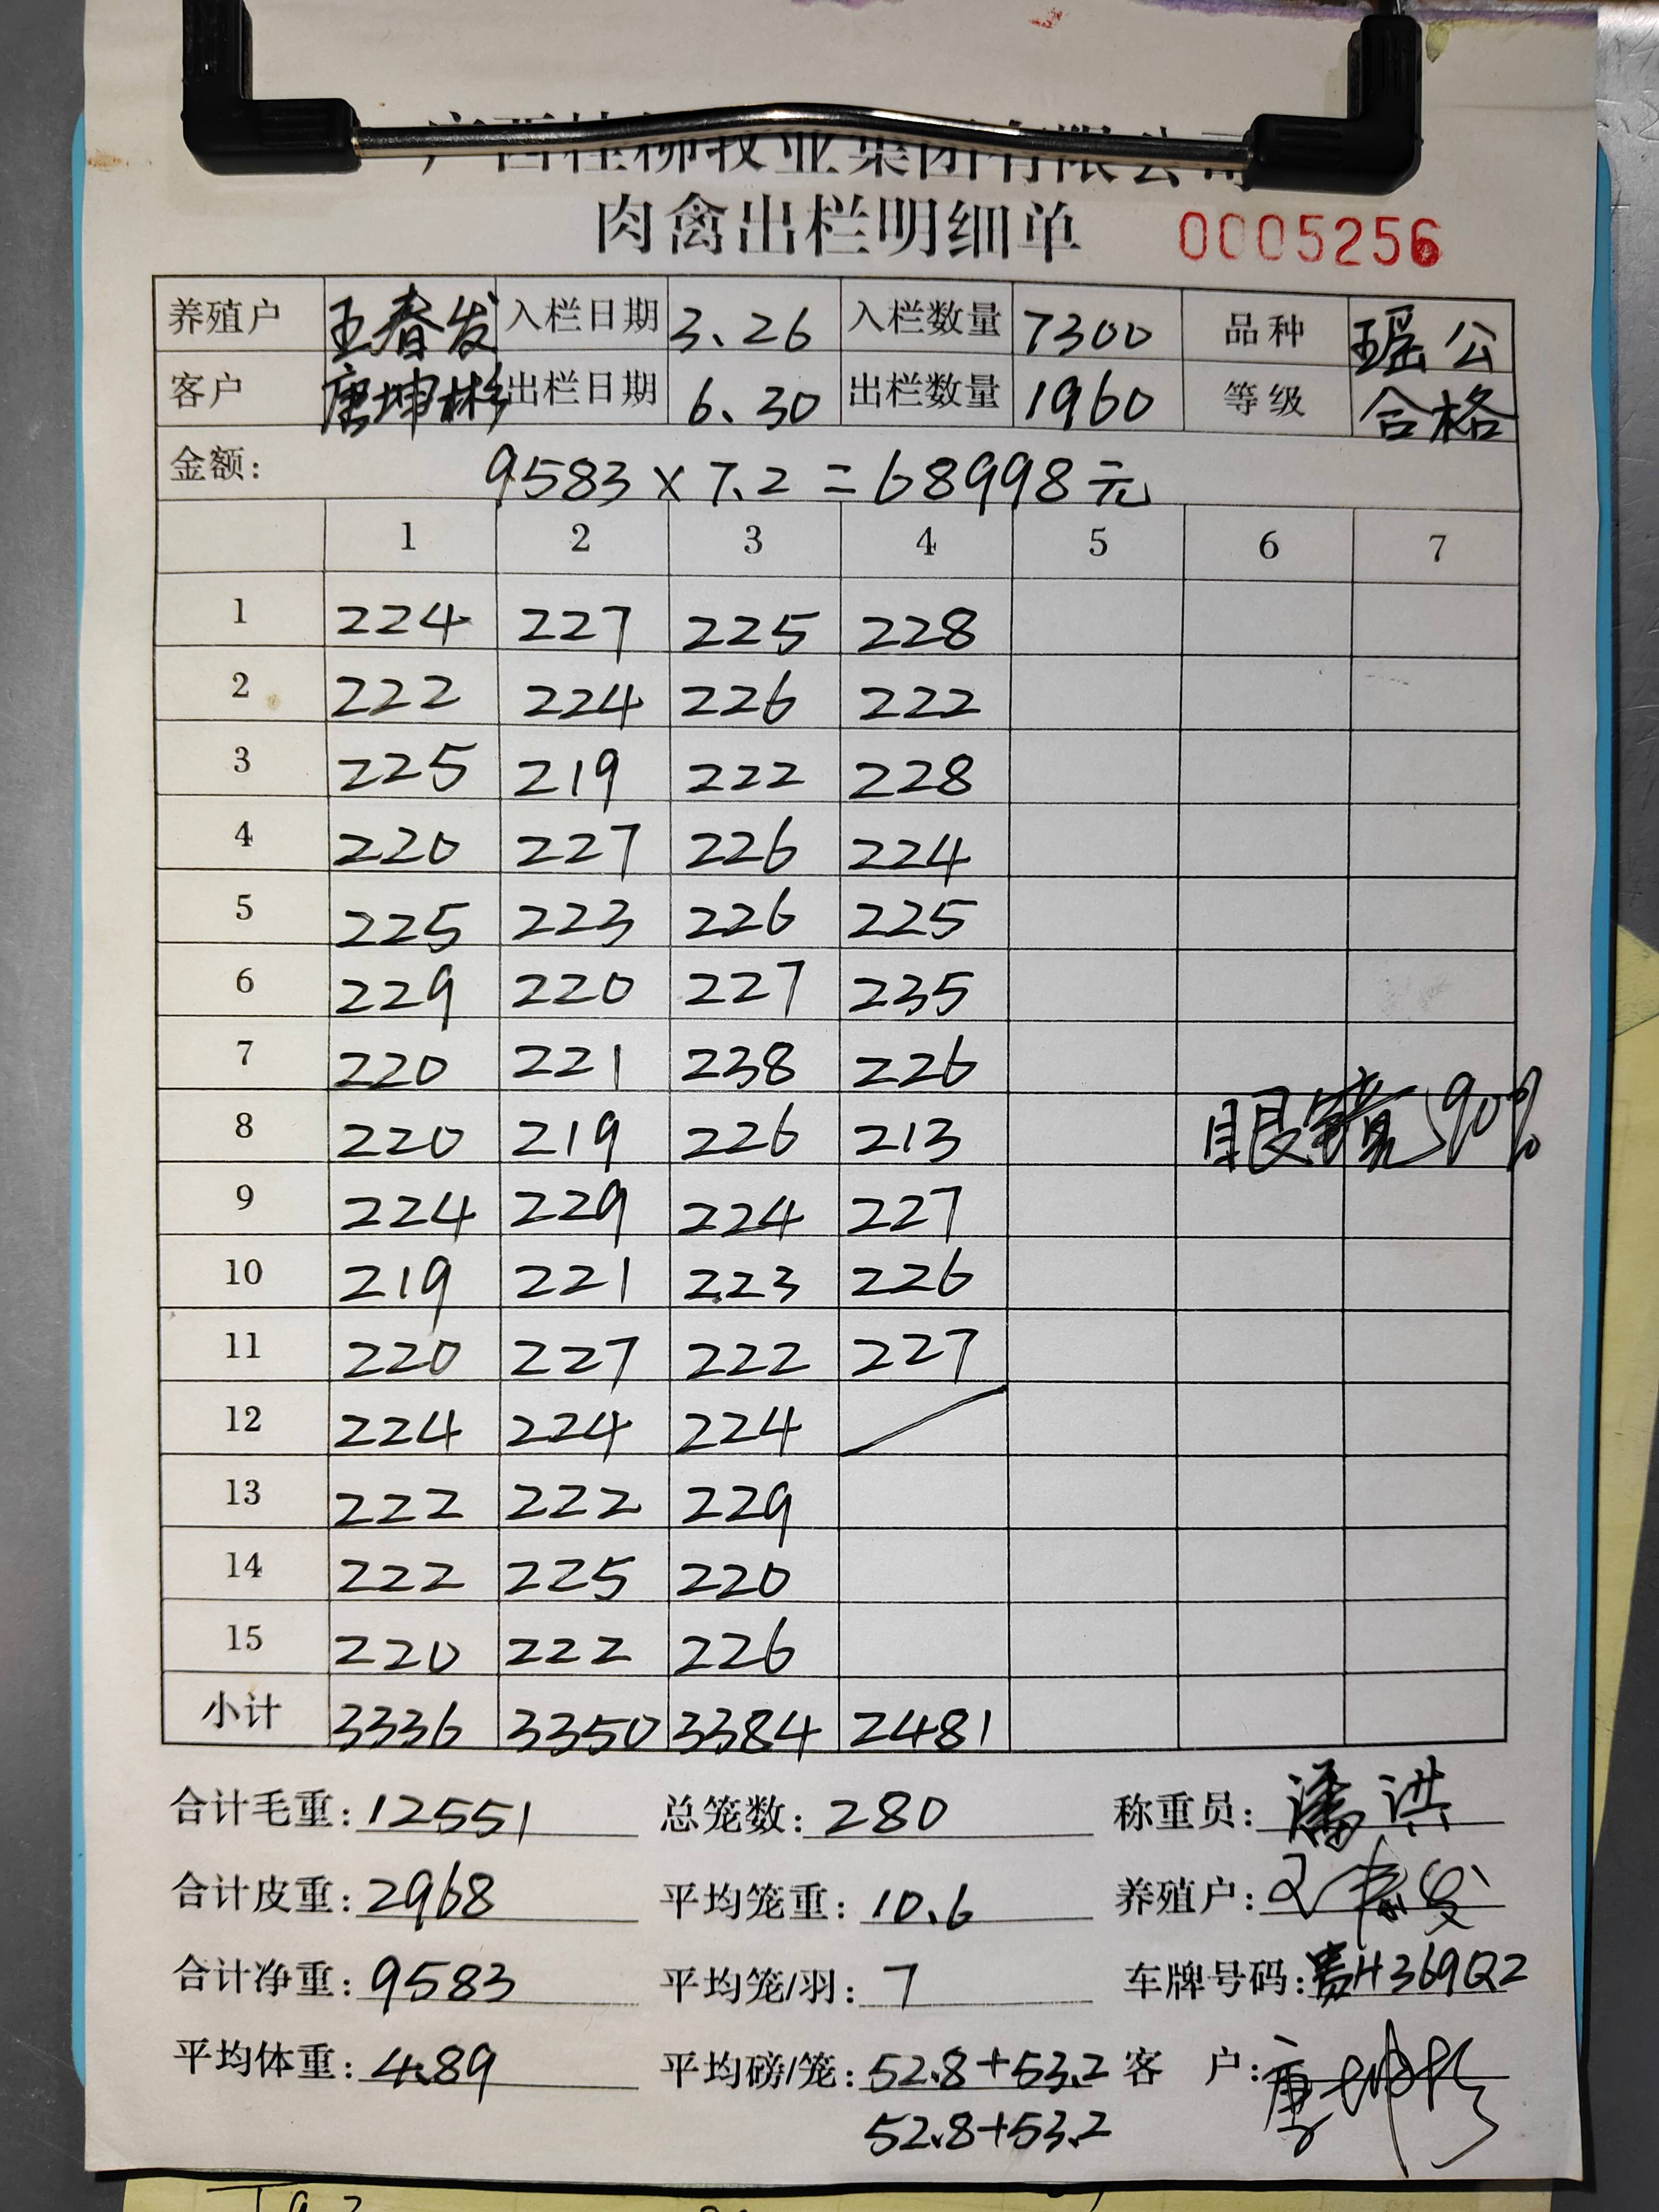 广西桂柳牧业集团有限公司
肉禽出栏明细单 0005256
养殖户 王春发 入栏日期 3.26 入栏数量 7300 品种 瑶公
客户 唐坤彬 出栏日期 6.30 出栏数量 1960 等级 合格
金额: 9583×7.2=68998元
1 2 3 4 5 6 7
1 224 227 225 228
2 222 224 226 222
3 225 219 222 228
4 220 227 226 224
5 225 223 226 225
6 229 220 227 235
7 220 221 238 226
8 220 219 226 213 眼镜90%
9 224 229 224 227
10 219 221 223 226
11 220 227 222 227
12 224 224 224
13 222 222 229
14 222 225 220
15 220 222 226
小计 3336 3350 3384 2481
合计毛重: 12551 总笼数: 280 称重员: 潘洪
合计皮重: 2968 平均笼重: 10.6 养殖户: 王春发
合计净重: 9583 平均笼/羽: 7 车牌号码: 贵H369Q2
平均体重: 4.89 平均磅/笼: 52.8+53.2 客 户: 唐坤彬
52.8+53.2